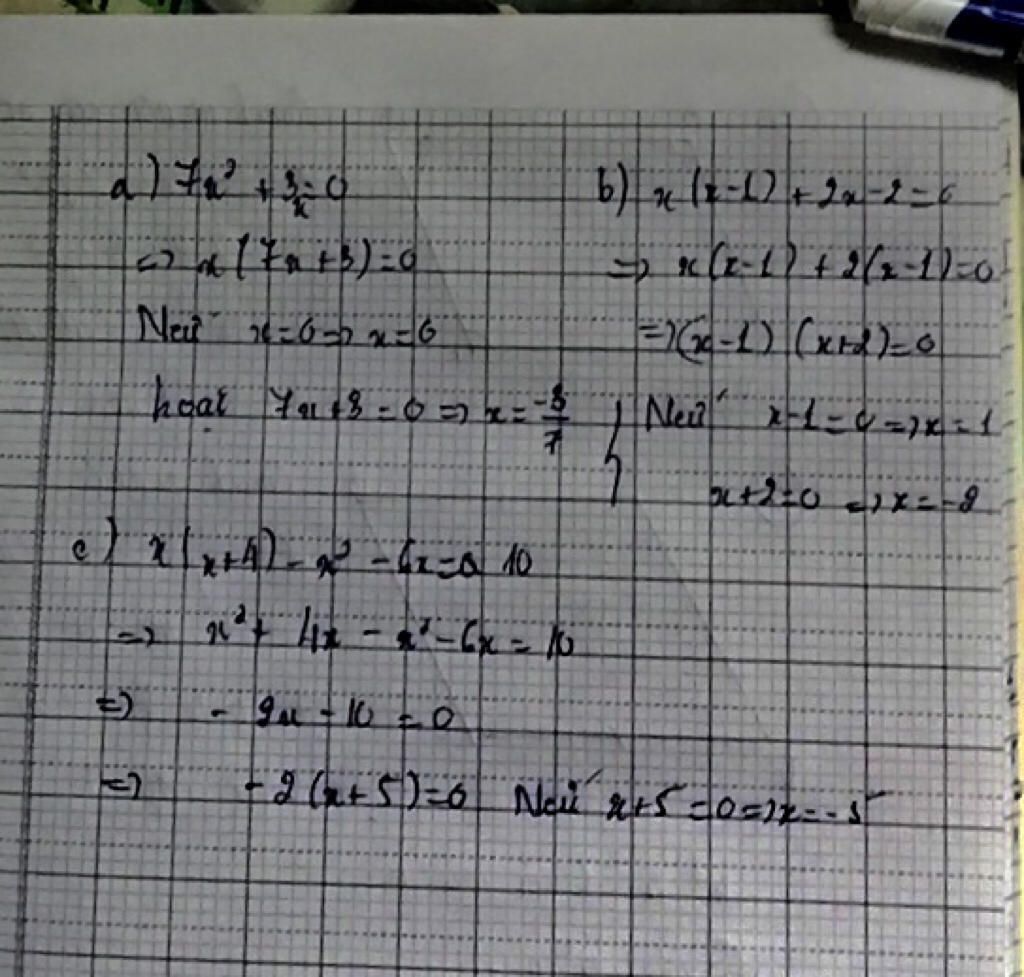 a) 7x² + 3x = 0
=> x(7x+3)=0
Nếu x=0 => x=0
hoặc 7x+3=0 => x=-3/7
b) x(x-1)+2x-2=0
=> x(x-1)+2(x-1)=0
=> (x-1)(x+2)=0
Nếu x-1=0 => x=1
x+2=0 => x=-2
c) x(x+4)-x²-6x=10
=> x²+4x-x²-6x=10
=> -2x-10=0
=> -2(x+5)=0 Nếu x+5=0 => x=-5